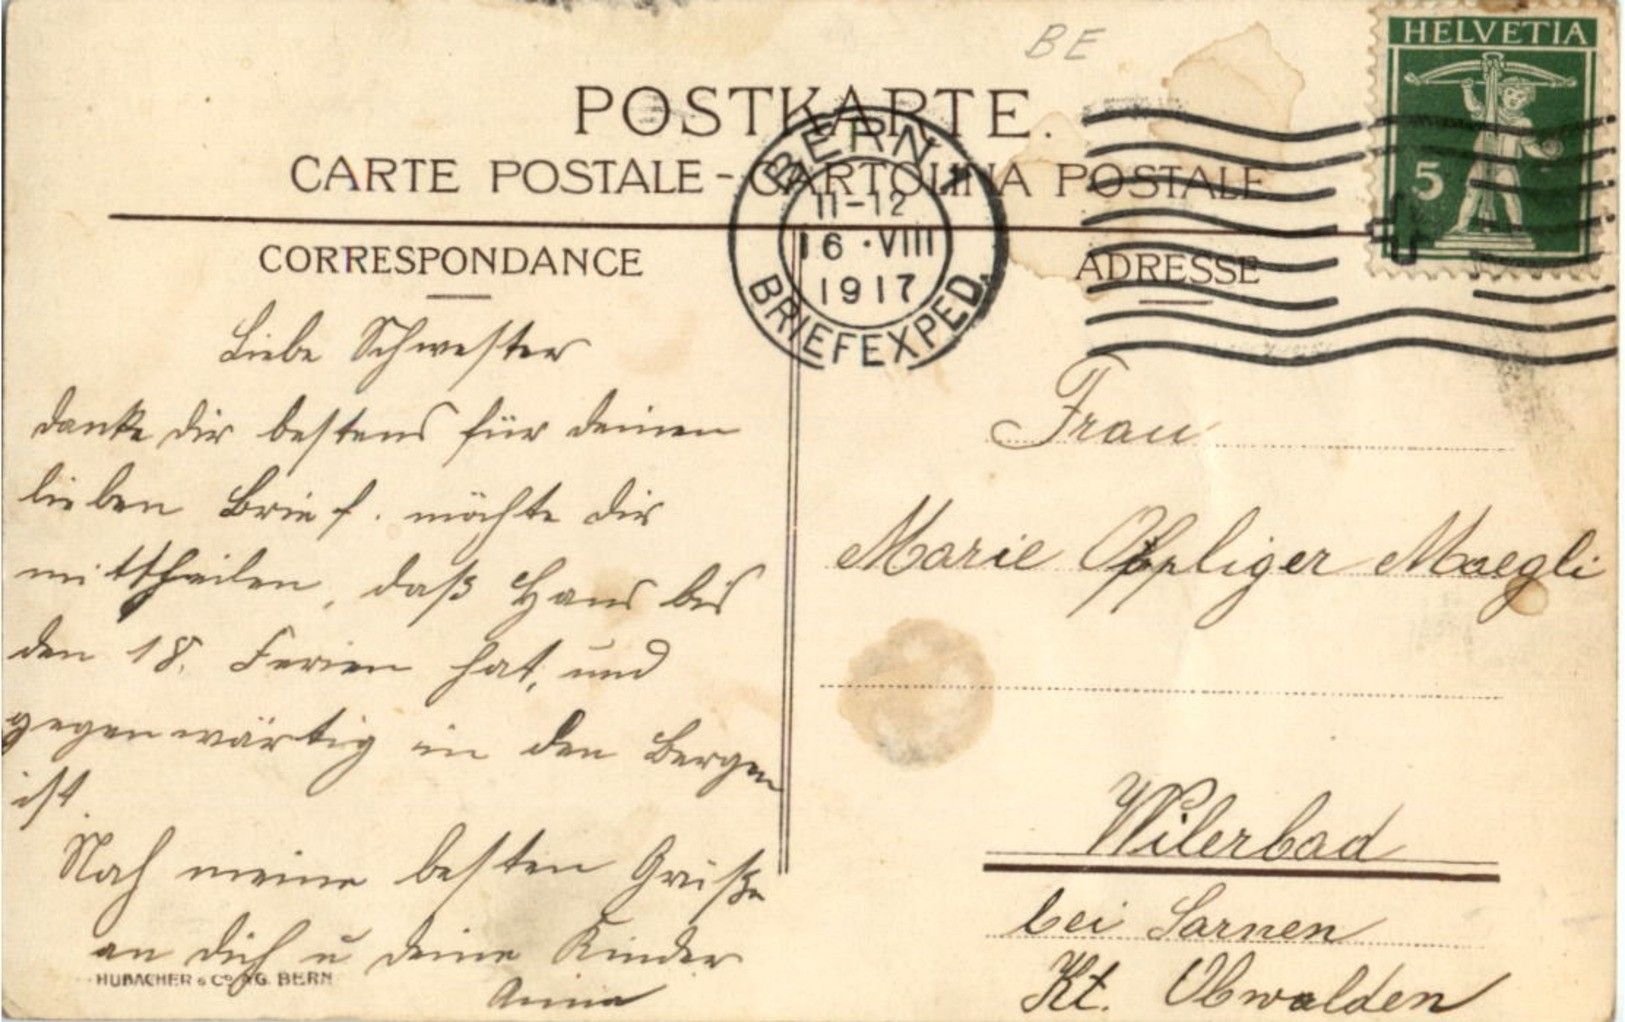 BE
HELVETIA
5
POSTKARTE.
CARTE POSTALE - CARTOLINA POSTALE
BERN 1
11-12
16·VIII
1917
BRIEFEXPED.
CORRESPONDANCE
ADRESSE
Liebe Schwester
danke dir bestens für deinen
lieben Brief. möchte dir
mittheilen, daß Hans bis
den 18. Ferien hat, und
gegenwärtig in den Bergen
ist.
Noch meine besten Grüße
an dich u deine Kinder
Anna
HUBACHER & Co AG. BERN
Frau
Marie Oppliger Maegli
Wilerbad
bei Sarnen
Kt. Obwalden